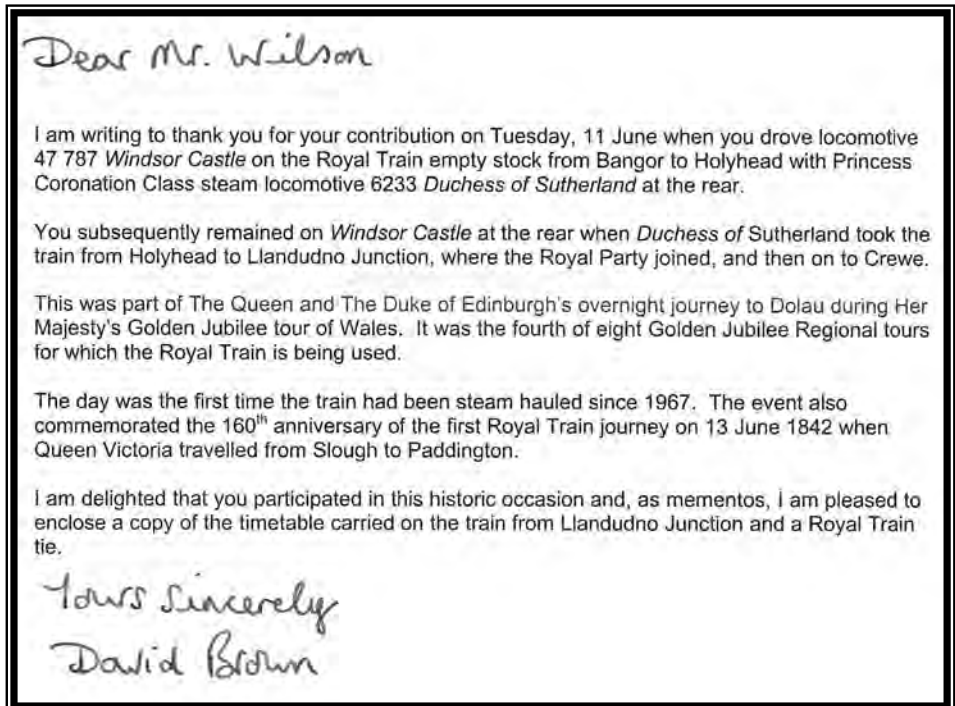 Dear Mr. Wilson
I am writing to thank you for your contribution on Tuesday, 11 June when you drove locomotive
47 787 Windsor Castle on the Royal Train empty stock from Bangor to Holyhead with Princess
Coronation Class steam locomotive 6233 Duchess of Sutherland at the rear.
You subsequently remained on Windsor Castle at the rear when Duchess of Sutherland took the
train from Holyhead to Llandudno Junction, where the Royal Party joined, and then on to Crewe.
This was part of The Queen and The Duke of Edinburgh's overnight journey to Dolau during Her
Majesty's Golden Jubilee tour of Wales.  It was the fourth of eight Golden Jubilee Regional tours
for which the Royal Train is being used.
The day was the first time the train had been steam hauled since 1967.  The event also
commemorated the 160th anniversary of the first Royal Train journey on 13 June 1842 when
Queen Victoria travelled from Slough to Paddington.
I am delighted that you participated in this historic occasion and, as mementos, I am pleased to
enclose a copy of the timetable carried on the train from Llandudno Junction and a Royal Train
tie.
Yours Sincerely
David Brown